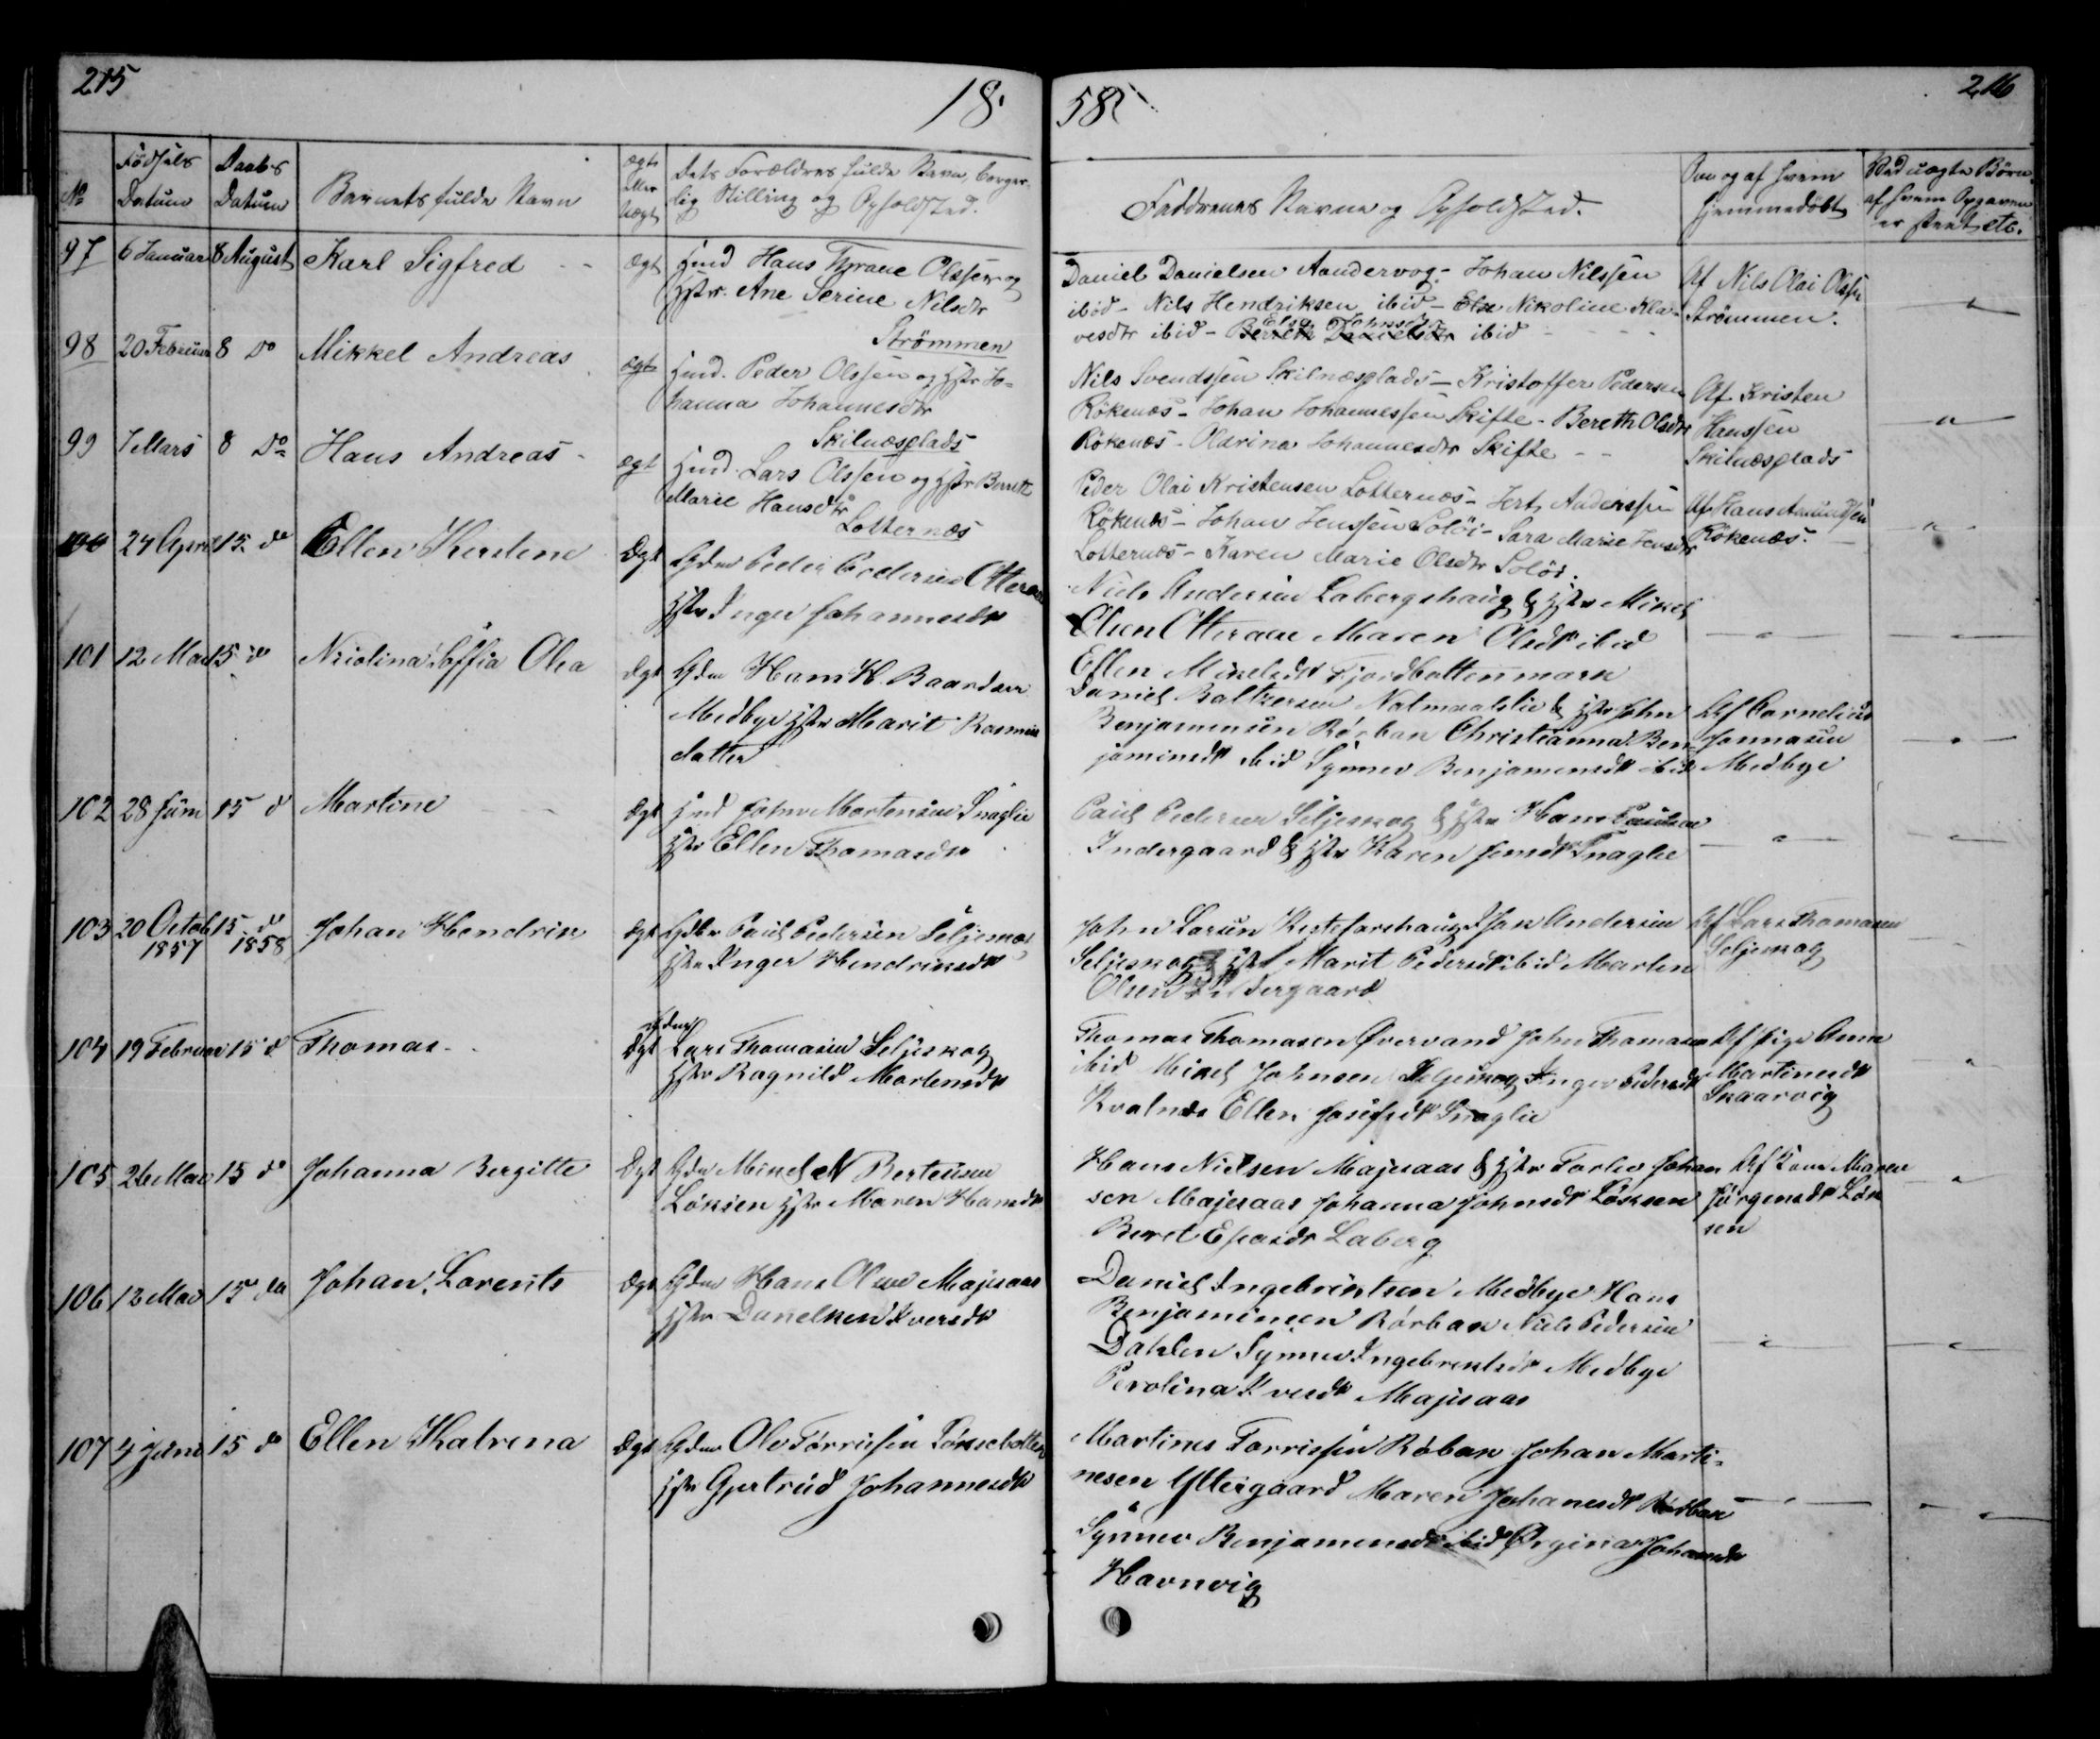 215
18
58
216
No
Fødsels Datum
Daabs Datum
Barnets fulde Navn
ægte eller uægte
Dets Forældres fulde Navn, borgerlig Stilling og Opholdsted.
Faddrenes Navne og Opholdsted.
Om og af hvem hjemmedøbt
Ved uægte Børn, af hvem Opgaven er skeet etc.
97 6 Januar 8 August Karl Sigfred ægt Hmd Hans Thrane Olssen og
Hstr. Ane Serine Nilsdtr
Strömmen
Daniel Danielsen Aandervog - Johan Nilssen
ibid - Nils Hendriksen ibid - Else Nikoline Kla-
vesdtr ibid - Bereth Danielsdtr ibid
Elsa Johnsdtr
Af Nils Olai Olssen
Strömmen.
98 20 Februar 8 Do Mikkel Andreas ægt Hmd. Peder Olssen og Hstr Jo-
hanna Johannesdtr
Skilnæsplads
Nils Svendssen Skilnæsplads - Kristoffer Pedersen
Rökenæs - Johan Johannessen Skifte - Bereth Olsdtr
Rökenæs - Olavina Johannesdtr Skifte
Af Kristen
Hanssen
Skilnæsplads
99 7 Mars 8 Do Hans Andreas ægt Hmd. Lars Olssen og Hstr Bereth
Marie Hansdtr
Lotternæs
Peder Olai Kristensen Lotternæs - Jert Anderssen
Rökenæs - Johan Jenssen Solöi - Sara Marie Jensdtr
Lotternæs - Karen Marie Olsdtr Solöi.
Af Hans Amundssen
Rökenæs.
100 24 April 15 do Ellen Kerstene Ægt Gdm Peder Pedersen Otteraae
Hstr Inger Johannesdtr
Niels Andersen Labergshaug & Hstr Mikel
Olsen Otteraae Maren Olsdtr ibid
Ellen Mikelsdtr Fjordbottenmark
101 12 Mai 15 do Nicolina Soffia Olea Ægt Gdm Hans H. Baardsen
Medbye Hstr Marit Rasmus
datter
Daniel Baltzersen Natmaalslie & Hstr John
Benjaminsen Rørbak Christianna Ben-
jaminsdtr ibid Synnev Benjaminsdtr ibid
Af Cornelius
Jonnasen
Medbye
102 28 Juni 15 d Martine Ægt Hmd John Mortensen Traglie
Hstr Ellen Thomasdtr
Paul Pedersen Seljeskog & Hstr Hans Paulsen
Indergaard & Hstr Karen Jensdtr Traglie
103 20 Octob 1857 15 do 1858 Johan Hendrik Ægt Gdbr Paul Pedersen Seljeskog
Hstr Inger Hendriksdtr
John Larsen Kistefoshaug Johan Andersen
Seljeskog & Hstr Marit Pedersdtr ibid Marten
Olsen Indergaard
Af Lars Thomasen
Seljeskog
104 19 Februar 15 d Thomas Ægt Gdm Lars Thomasen Seljeskog
Hstr Ragnild Mortensdtr
Thomas Thomasen Øvervand John Thomasen
ibid Mikel Johnsen Seljeskog Inger Pedersdtr
Kvalnæs Ellen Josefsdtr Traglie
Af Pige Anne
Martinusdtr
Skaarvig
105 26 Mai 15 do Johanna Bergitte Ægt Gdm Mikel N Berteusen
Løksen Hstr Maren Hansdtr
Hans Nielsen Majesaas & Hstr Torlev Johan
sen Majesaas Johanna Johnsdtr Løksen
Beret Esaiasdtr Laberg
Af Kone Maren
Jørgensdtr Løk
sen
106 12 Mai 15 do Johan Lorents Ægt Gdm Hans Olsen Majesaas
Hstr Danelken Iversdtr
Daniel Ingebrigtsen Medbye Hans
Benjaminsen Rørbak Niels Pedersen
Dahlen Synnev Ingebrigtsdtr Medbye
Perolina Iversdtr Majesaas
107 4 Juni 15 do Ellen Katrina Ægt Gdm Ole Torrissen Løksebotten
Hstr Gjertrud Johannesdtr
Martines Torrissen Røbak Johan Marti-
nesen Yttergaard Maren Johanesdtr Rørbak
Synnev Benjaminsdtr ibid Ørgina Johansdtr
Havnvig